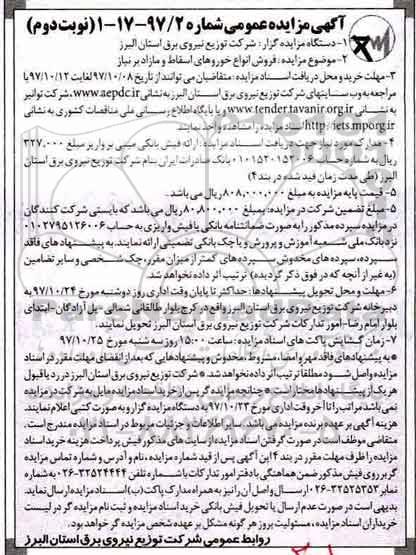 آگهی مزایده عمومی شماره ۹۷/۲-۱۷-۱ (نوبت دوم)
۱-دستگاه مزایده گزار: شرکت توزیع نیروی برق استان البرز
۲-موضوع مزایده: فروش انواع خودروهای اسقاط و مازاد بر نیاز
۳-مهلت خرید و محل دریافت اسناد مزایده: متقاضیان می توانند از تاریخ ۹۷/۱۰/۰۸ لغایت ۹۷/۱۰/۱۲ با
مراجعه به وب سایتهای شرکت توزیع نیروی برق استان البرز به نشانی www.aepdc.ir، شرکت توانیر
به نشانی www.tender.tavanir.org.ir و یا پایگاه اطلاع رسانی ملی مناقصات کشوری به نشانی
http://iets.mporg.ir اسناد مزایده را مشاهده و اخذ نمایند.
۴-مدارک مورد نیاز جهت دریافت اسناد مزایده: ارائه فیش بانکی مبنی بر واریز مبلغ ۳۲۷،۰۰۰
ریال به شماره حساب ۰۱۰۱۵۲۰۱۵۳۰۰۶ بانک صادرات ایران بنام شرکت توزیع نیروی برق استان
البرز (طی مدت زمان قید شده در بند ۴)
۵-قیمت پایه مزایده به مبلغ ۸۰۸،۰۰۰،۰۰۰ ریال می باشد.
۵-مبلغ تضمین شرکت در مزایده: بمبلغ ۸۰،۸۰۰،۰۰۰ ریال می باشد که بایستی شرکت کنندگان
در مزایده سپرده مذکور را به صورت ضمانتنامه بانکی یا فیش واریزی به حساب ۰۱۰۲۷۹۵۱۲۶۰۰۶
نزد بانک ملی شعبه آموزش و پرورش و یا چک بانکی تضمینی ارائه نمایند. به پیشنهاد های فاقد
سپرده، سپرده های مخدوش، سپرده های کمتر از میزان مقرر، چک شخصی و سایر تضامین
(به غیر از آنچه که در فوق ذکر گردیده) ترتیب اثر داده نخواهد شد.
۶-مهلت و محل تحویل پیشنهادها: حداکثر تا پایان وقت اداری روز دوشنبه مورخ ۹۷/۱۰/۲۴ به
دبیرخانه شرکت توزیع نیروی برق استان البرز واقع در کرج بلوار طالقانی شمالی-پل آزادگان-ابتدای
بلوار امام رضا-امور تدارکات شرکت توزیع نیروی برق استان البرز تحویل نمایند.
۷-زمان گشایش پاکت های اسناد مزایده: ساعت ۱۵:۰۰ روز سه شنبه مورخ ۹۷/۱۰/۲۵
*به پیشنهادهای فاقد مهر و امضا، مشروط، مخدوش و پیشنهادهایی که بعد از انقضای مهلت مقرر در اسناد
مزایده واصل شود مطلقا ترتیب اثر داده نخواهد شد. *شرکت توزیع نیروی برق استان البرز در رد یا قبول
هر یک از پیشنهادها مختار است. *چنانچه مزایده گر پس از خرید اسناد مزایده مایل به شرکت در مزایده
نمی باشد مراتب را تا آخر وقت اداری مورخ ۹۷/۱۰/۲۳ به دستگاه مزایده گزار و به صورت کتبی اعلام نمایند.
هزینه آگهی بر عهده برنده مزایده می باشد. سایر اطلاعات و جزئیات مربوط در اسناد مزایده مندرج است.
متقاضی موظف است در صورت گرفتن اسناد مزایده از سایت های مذکور فیش پرداخت هزینه خرید اسناد
مزایده را ظرف مهلت مقرر در بند ۴ این آگهی پس از قید شماره مزایده، نام و آدرس و شماره تماس مزایده
گر بر روی فیش مذکور ضمن هماهنگی با دفتر امور تدارکات با شماره تلفن ۳۳۵۲۴۴۴۴-۰۲۶ به شماره
نمابر ۳۳۵۲۵۳۵۳-۰۲۶ ارسال و اصل آن را نیز به همراه مدارک پاکت (ب) اسناد مزایده ارسال نماید.
بدیهی است در صورت عدم ارسال یا تحویل فیش بانکی خرید اسناد مزایده و ثبت نام مزایده گر در لیست
خریداران اسناد مزایده، مسئولیت بروز هر گونه مشکل بر عهده شخص مزایده گر خواهد بود.
روابط عمومی شرکت توزیع نیروی برق استان البرز